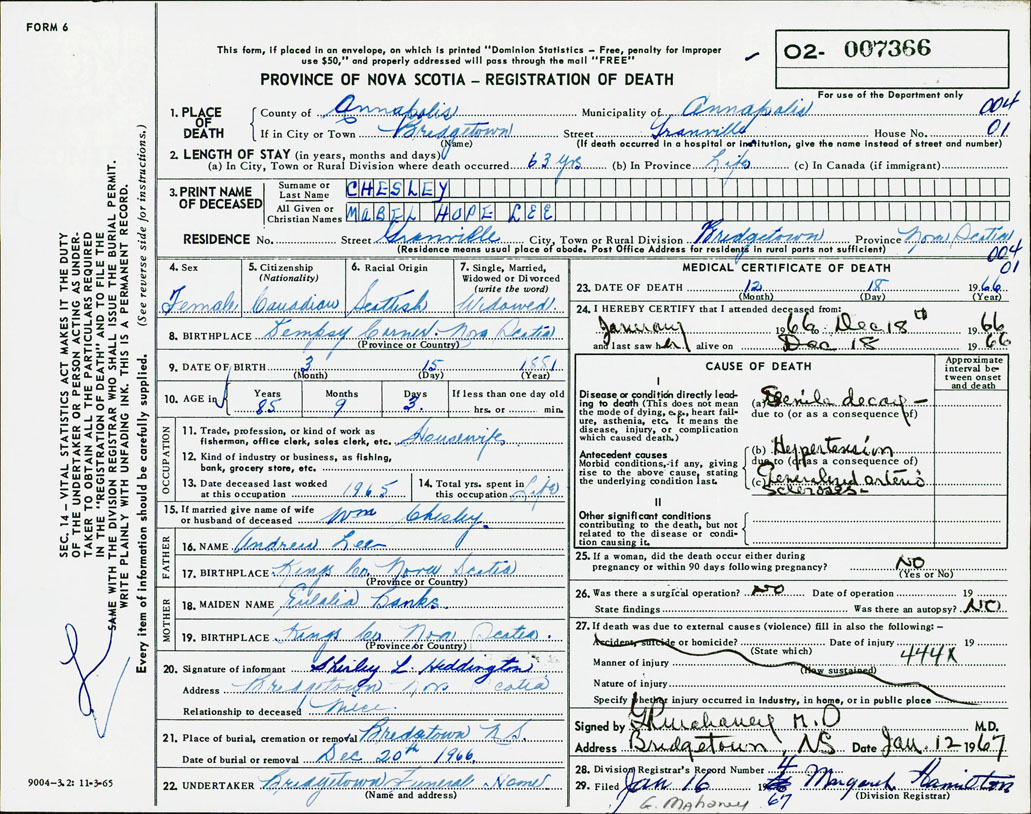 FORM 6
This form, if placed in an envelope, on which is printed "Dominion Statistics – Free, penalty for improper
use $50," and properly addressed will pass through the mail "FREE"
PROVINCE OF NOVA SCOTIA – REGISTRATION OF DEATH
02- 007366
For use of the Department only
004
01
1. PLACE OF DEATH
County of Annapolis Municipality of Annapolis
If in City or Town Bridgetown Street Granville House No.
(Name) (If death occurred in a hospital or institution, give the name instead of street and number)
2. LENGTH OF STAY (in years, months and days)
(a) In City, Town or Rural Division where death occurred 63 yrs (b) In Province Life (c) In Canada (if immigrant)
3. PRINT NAME OF DECEASED
Surname or Last Name CHESLEY
All Given or Christian Names MABEL HOPE LEE
RESIDENCE No. Street Granville City, Town or Rural Division Bridgetown Province Nova Scotia
(Residence means usual place of abode. Post Office Address for residents in rural parts not sufficient)
004
01
4. Sex
Female
5. Citizenship (Nationality)
Canadian
6. Racial Origin
Scottish
7. Single, Married, Widowed or Divorced (write the word)
Widowed.
8. BIRTHPLACE Dempsy Corner. Nova Scotia
(Province or Country)
9. DATE OF BIRTH 3 15 1881
(Month) (Day) (Year)
10. AGE in Years Months Days If less than one day old
85 9 3. hrs. or min.
OCCUPATION
11. Trade, profession, or kind of work as
fisherman, office clerk, sales clerk, etc. Housewife
12. Kind of industry or business, as fishing,
bank, grocery store, etc.
13. Date deceased last worked
at this occupation 1965
14. Total yrs. spent in
this occupation Life
15. If married give name of wife
or husband of deceased Wm Chesley.
FATHER
16. NAME Andrew Lee
17. BIRTHPLACE Kings Co Nova Scotia
(Province or Country)
MOTHER
18. MAIDEN NAME Eulalia Banks.
19. BIRTHPLACE Kings Co Nova Scotia.
(Province or Country)
20. Signature of informant Shirley L. Heddington
Address Bridgetown Nova Scotia
Relationship to deceased Niece.
21. Place of burial, cremation or removal Bridgetown N.S.
Date of burial or removal Dec 20th 1966
22. UNDERTAKER Bridgetown Funeral Home
(Name and address)
MEDICAL CERTIFICATE OF DEATH
23. DATE OF DEATH 12 18 1966
(Month) (Day) (Year)
24. I HEREBY CERTIFY that I attended deceased from:
January 1966 Dec 18th 1966
and last saw her alive on Dec 18 1966
CAUSE OF DEATH
Approximate interval between onset and death
I
Disease or condition directly leading to death (This does not mean the mode of dying, e.g., heart failure, asthenia, etc. It means the disease, injury, or complication which caused death.)
(a) Senile decay –
due to (or as a consequence of)
Antecedent causes
Morbid conditions, if any, giving rise to the above cause, stating the underlying condition last.
(b) Heppertension
due to (or as a consequence of)
(c) Generalized arterio
scleroses –
II
Other significant conditions
contributing to the death, but not related to the disease or condition causing it.
25. If a woman, did the death occur either during
pregnancy or within 90 days following pregnancy? NO
(Yes or No)
26. Was there a surgical operation? NO Date of operation 19
State findings Was there an autopsy? NO
27. If death was due to external causes (violence) fill in also the following: –
Accident, suicide or homicide? Date of injury 19
(State which)
444X
Manner of injury
(How sustained)
Nature of injury
Specify whether injury occurred in industry, in home, or in public place
Signed by M.D M.D.
Address Bridgetown, NS Date Jan. 12 1967
28. Division Registrar's Record Number 4
29. Filed Jan 16 19 67 Margaret Hamilton
(Division Registrar)
G. Mahoney
SEC. 14 – VITAL STATISTICS ACT MAKES IT THE DUTY
OF THE UNDERTAKER OR PERSON ACTING AS UNDER-
TAKER TO OBTAIN ALL THE PARTICULARS REQUIRED
IN THE "REGISTRATION OF DEATH" AND TO FILE THE
SAME WITH THE DIVISION REGISTRAR WHO SHALL ISSUE THE BURIAL PERMIT.
WRITE PLAINLY WITH UNFADING INK. THIS IS A PERMANENT RECORD.
Every item of information should be carefully supplied. (See reverse side for instructions.)
9004-3.2: 11-3-65